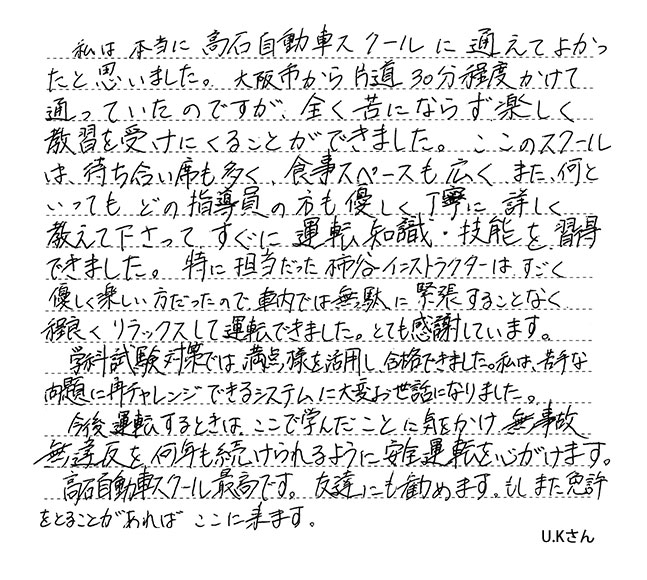 私は本当に高石自動車スクールに通えてよかっ
たと思いました。大阪市から片道30分程度かけて
通っていたのですが、全く苦にならず楽しく
教習を受けにくることができました。ここのスクール
は、待ち合い席も多く、食事スペースも広く、また、何と
いってもどの指導員の方も優しく丁寧に詳しく
教えて下さってすぐに運転知識・技能を習得
できました。特に担当だった柿谷インストラクターはすごく
優しく楽しい方だったので、車内では無駄に緊張することなく
程良くリラックスして運転できました。とても感謝しています。
学科試験対策では満点様を活用し、合格できました。私は、苦手な
問題に再チャレンジできるシステムに大変お世話になりました。
今後運転するときは、ここで学んだことに気をかけ無事故
無違反を何年も続けられるように安全運転を心がけます。
高石自動車スクール最高です。友達にも勧めます。もしまた免許
をとることがあればここに来ます。
U.Kさん